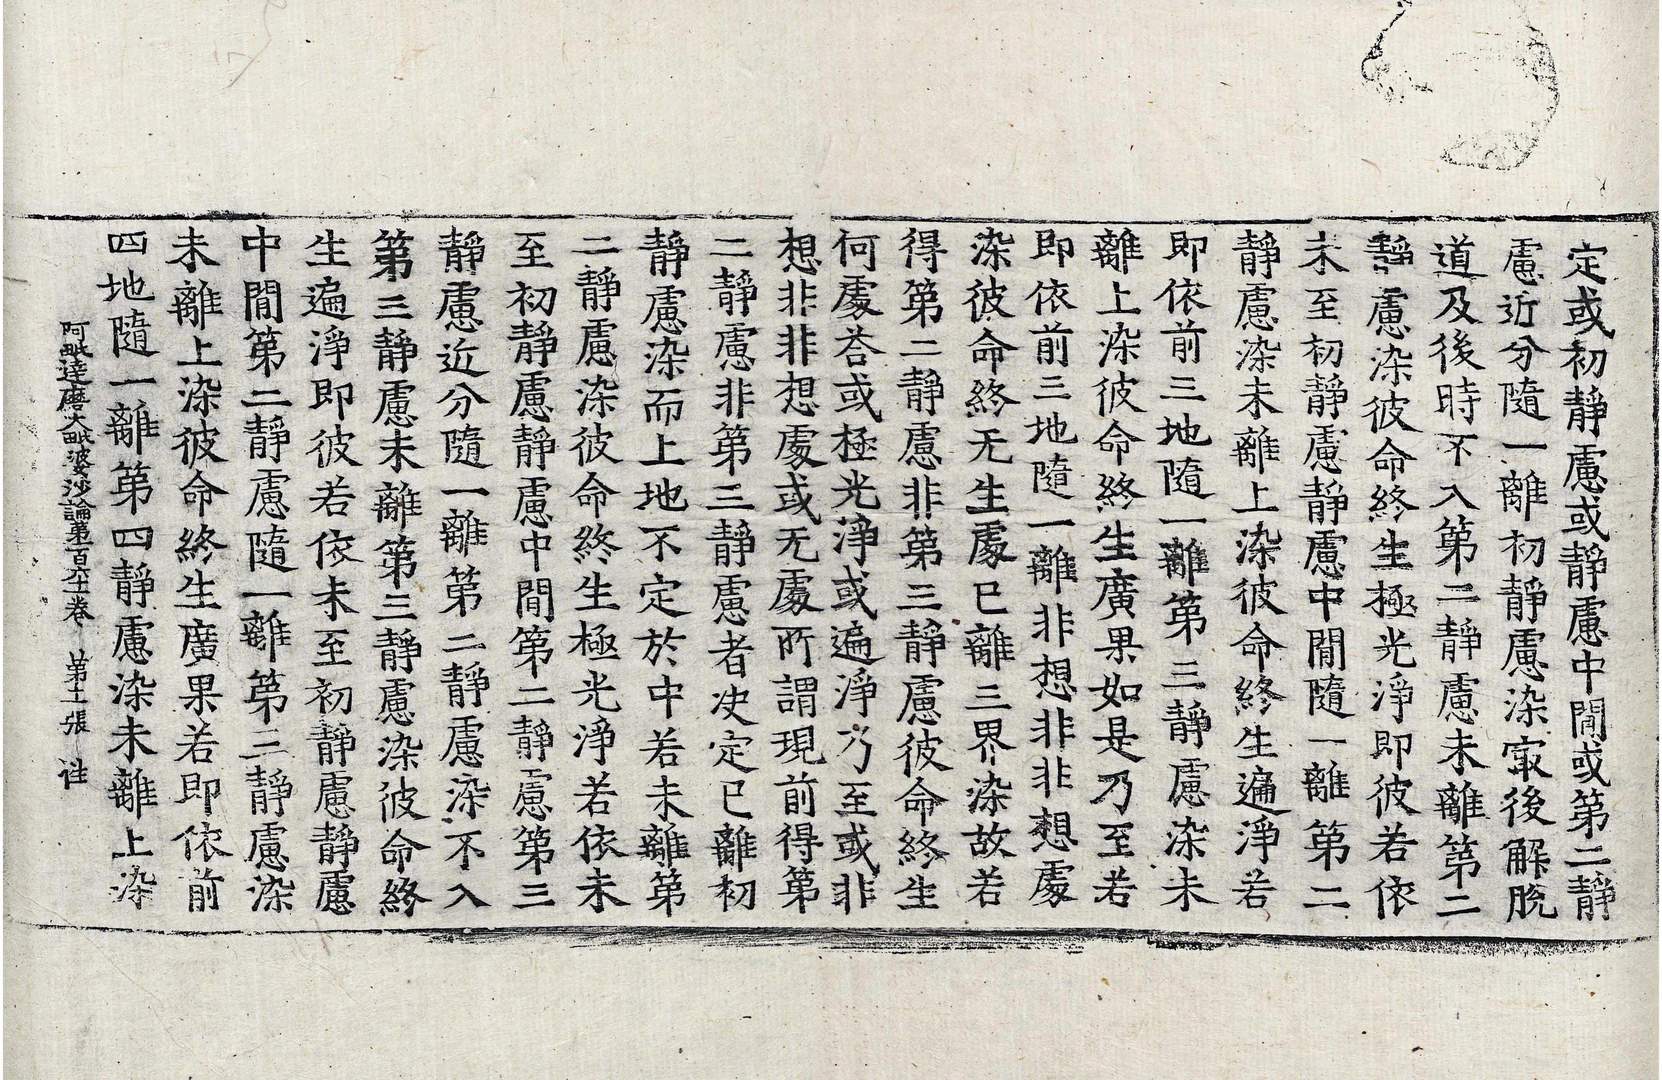 定或初靜慮或靜慮中閒或第二靜
慮近分隨一離初靜慮染㝡後解脫
道及後時不入第二靜慮未離第二
靜慮染彼命終生極光淨即彼若依
未至初靜慮靜慮中閒隨一離第二
靜慮染未離上染彼命終生遍淨若
即依前三地隨一離第三靜慮染未
離上染彼命終生廣果如是乃至若
即依前三地隨一離非想非非想處
染彼命終无生處已離三界染故若
得第二靜慮非第三靜慮彼命終生
何處荅或極光淨或遍淨乃至或非
想非非想處或无處所謂現前得第
二靜慮非第三靜慮者決定已離初
靜慮染而上地不定於中若未離第
二靜慮染彼命終生極光淨若依未
至初靜慮靜慮中閒第二靜慮第三
靜慮近分隨一離第二靜慮染不入
第三靜慮未離第三靜慮染彼命終
生遍淨即彼若依未至初靜慮靜慮
中閒第二靜慮隨一離第三靜慮染
未離上染彼命終生廣果若即依前
四地隨一離第四靜慮染未離上染
阿毗達磨大毗婆沙論第百六十卷 第十二張